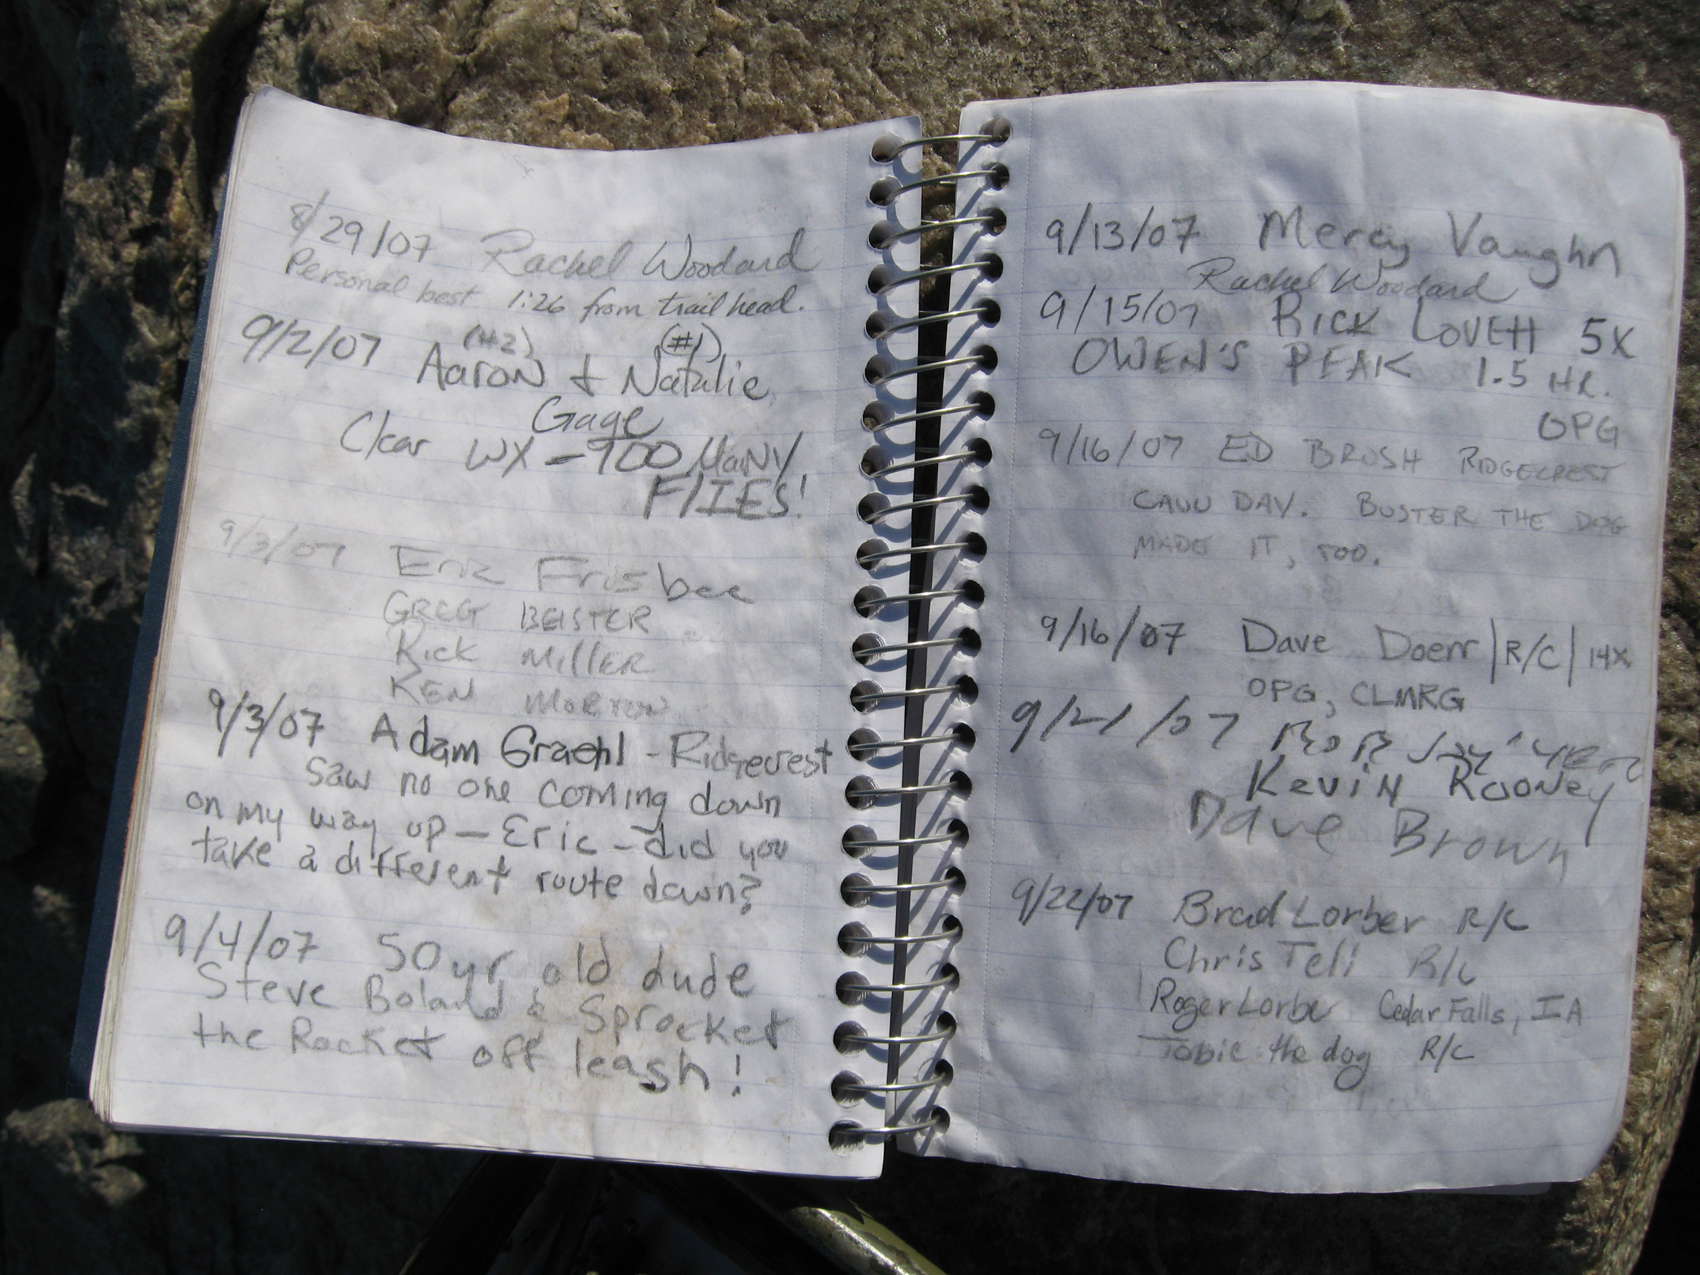 8/29/07 Rachel Woodard
Personal best 1:26 from trail head.
(#2) (#1)
9/2/07 Aaron & Natalie
Gage
Clear WX - 900 MANY
FlIES!
9/3/07 Eric Frisbee
GREG BEISTER
Rick MillER
KEN MORTON
9/3/07 Adam Graehl - Ridgecrest
saw no one coming down
on my way up - Eric - did you
take a different route down?
9/4/07 50 yr old dude
Steve Boland & Sprocket
the Rocket off leash!
9/13/07 Mercy Vaughn
Rachel Woodard
9/15/07 RICK LOVETT 5X
OWEN'S PEAK 1.5 HR.
OPG
9/16/07 ED BRUSH RIDGECREST
DAY. BUSTER THE DOG
MADE IT, TOO.
9/16/07 Dave Doerr | R/C | 14x
OPG, CLMRG
9/21/07 BOB
Kevin Rooney
Dave Brown
9/22/07 Brad Lorber R/C
Chris Tell R/C
Roger Lorber Cedar Falls, IA
Tobie the dog R/C